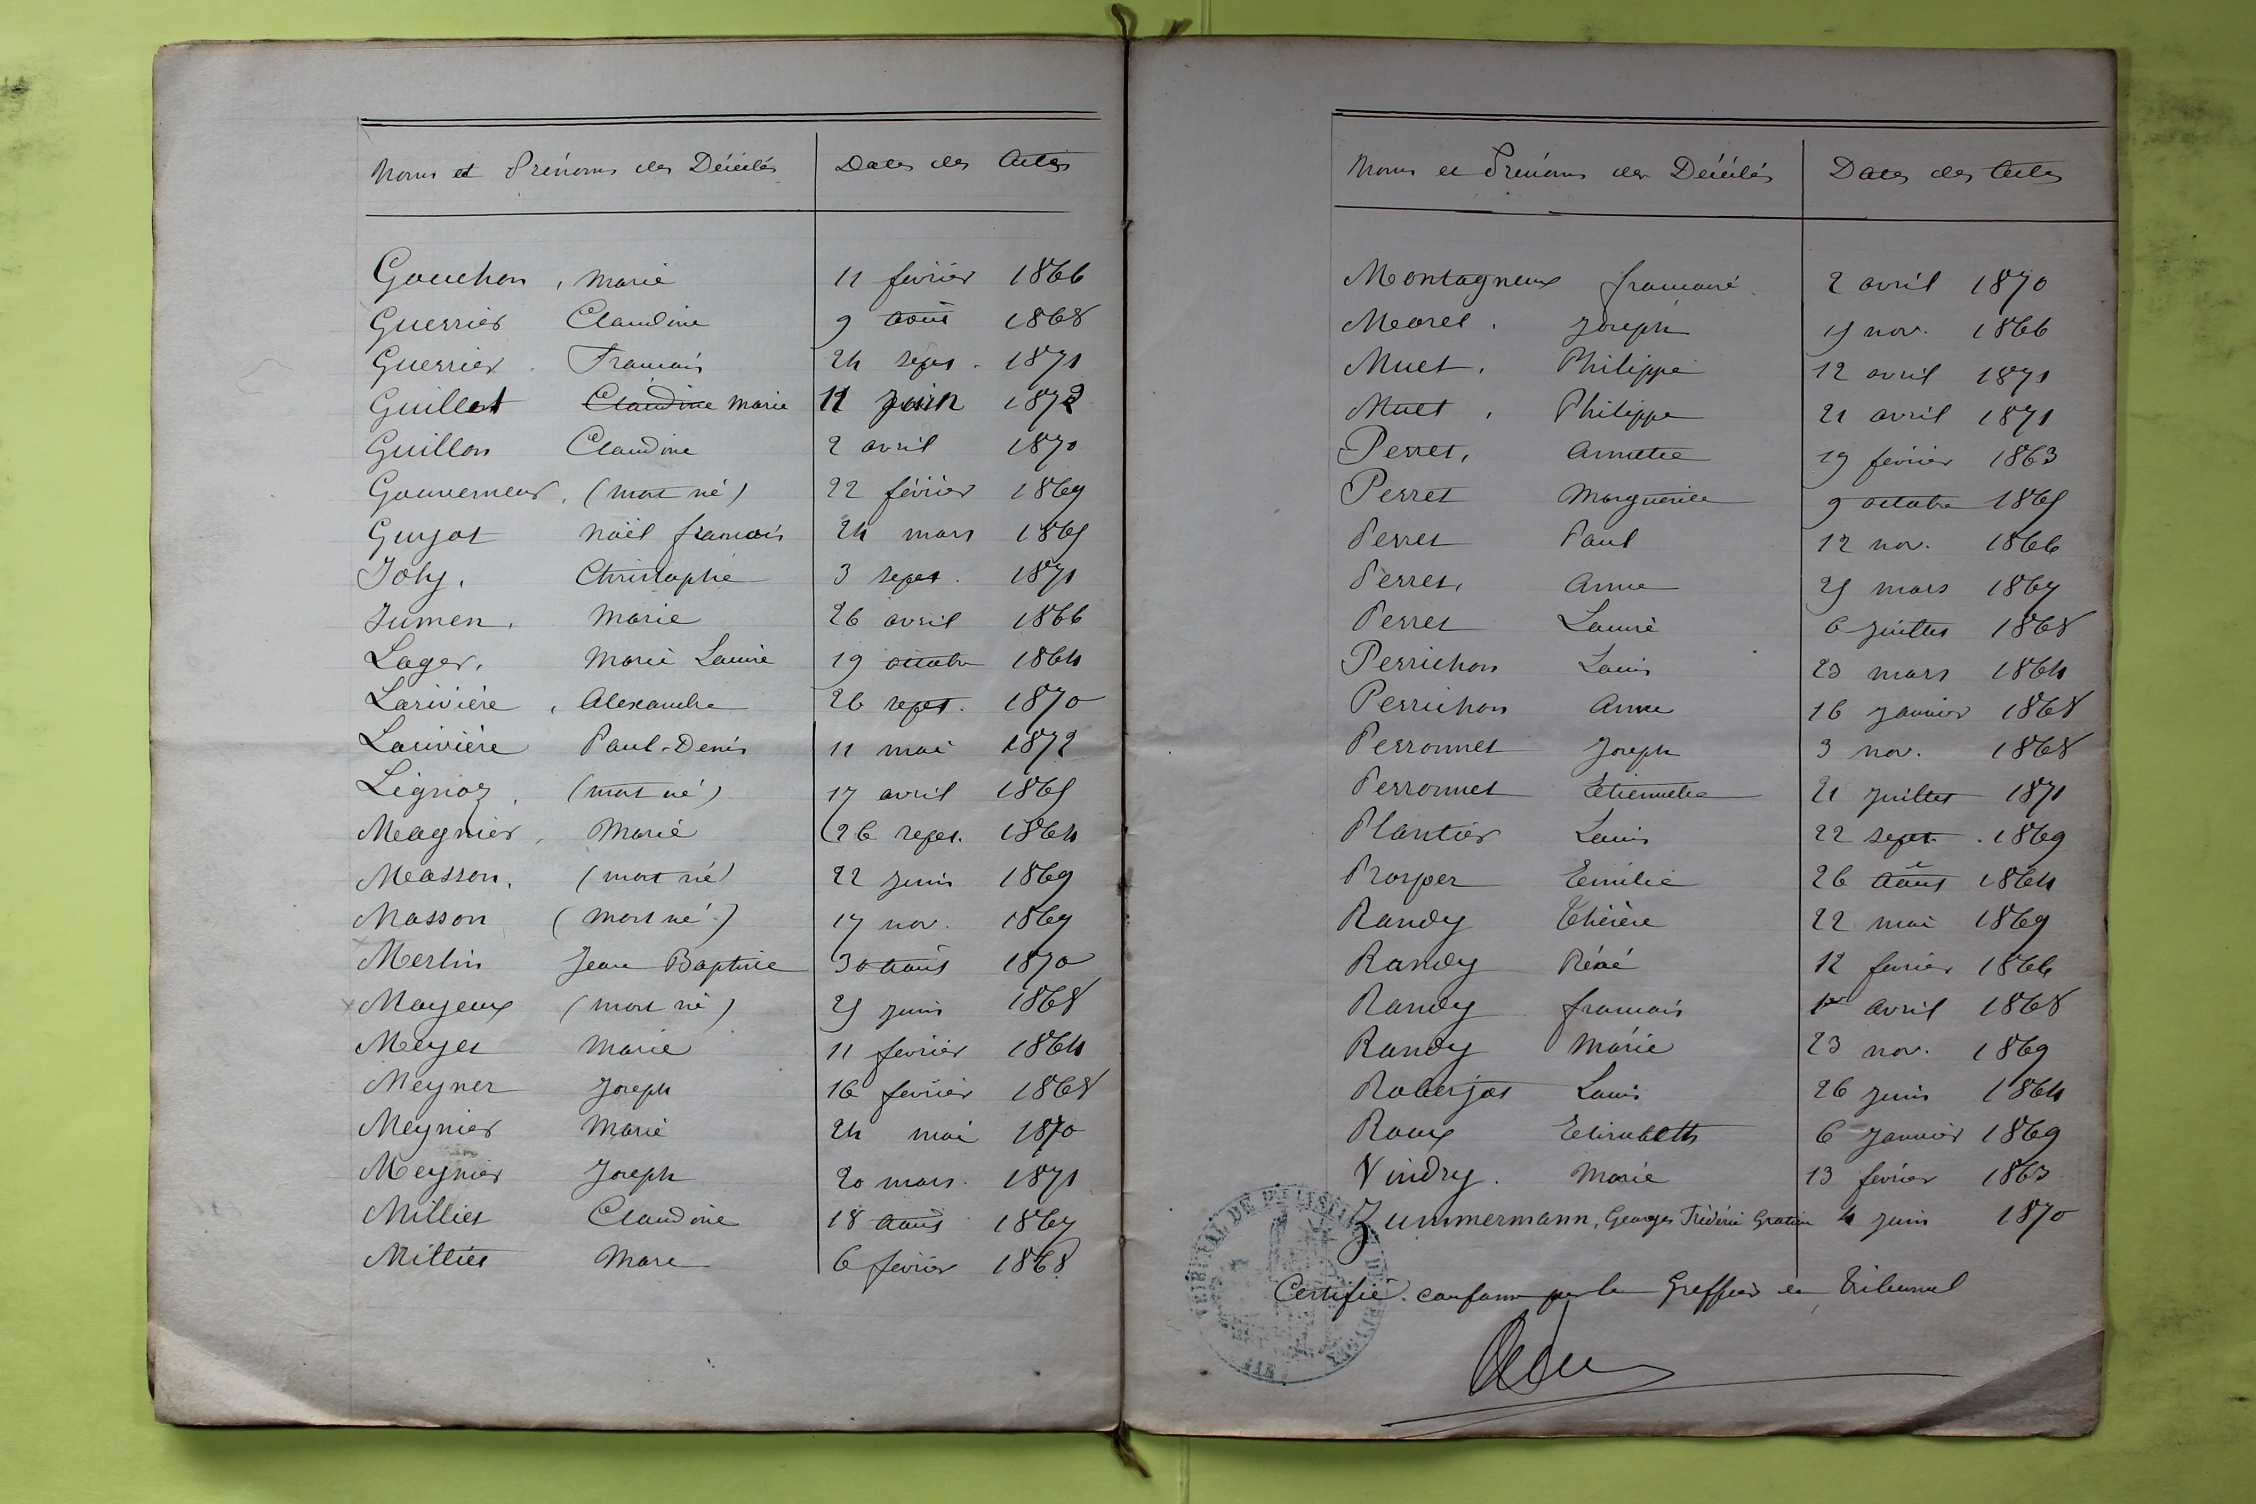 Noms et Prénoms des Décédés Dates des Actes
Gouchon, Marie 11 février 1866
Guerrier Claudine 9 août 1868
Guerrier François 24 sept. 1871
Guillot Claudine Marie 11 juin 1872
Guillon Claudine 2 avril 1870
Gouverneur, (mort né) 22 février 1869
Guyot Noël François 24 mars 1865
Joly, Christophe 3 sept. 1871
Jumen, Marie 26 avril 1866
Lager, Marie Laurie 19 octobre 1864
Larivière, Alexandre 26 sept. 1870
Larivière Paul-Denis 11 mai 1872
Lignoz, (mort né) 17 avril 1865
Magnier, Marie 26 sept. 1864
Masson, (mort né) 22 juin 1869
Masson (mort né) 17 nov. 1869
Merlin Jean Baptiste 30 août 1870
Mayeux (mort né) 25 juin 1868
Meyet Marie 11 février 1864
Meyner Joseph 16 février 1868
Meynier Marie 24 mai 1870
Meynier Joseph 20 mars 1871
Milliet Claudine 18 août 1867
Milliet Marc 6 février 1868
Noms et Prénoms des Décédés Dates des Actes
Montagneux 2 avril 1870
Morel, Joseph 15 nov. 1866
Muet, Philippe 12 avril 1871
Muet, Philippe 21 avril 1871
Perret, Annette 19 février 1863
Perret Marguerite 9 octobre 1865
Perret Paul 12 nov. 1866
Perret, Anne 25 mars 1867
Perret Laurie 6 juillet 1868
Perrichon Louis 23 mars 1864
Perrichon Anne 16 janvier 1868
Perronnet Joseph 3 nov. 1868
Perronnet Etiennette 21 juillet 1871
Plantier Louis 22 sept. 1869
Prosper Emilie 26 août 1864
Randy Thérèse 22 mai 1869
Randy Réné 12 février 1866
Randy François 1er avril 1868
Randy Marie 23 nov. 1869
Roberjot Louis 26 juin 1864
Roux Elisabeth 6 janvier 1869
Vindry. Marie 13 février 1863
Zummermann, Georges Frédéric Gratien 4 juin 1870
Certifié conforme par le Greffier du Tribunal
TRIBUNAL DE 1RE INSTANCE DE